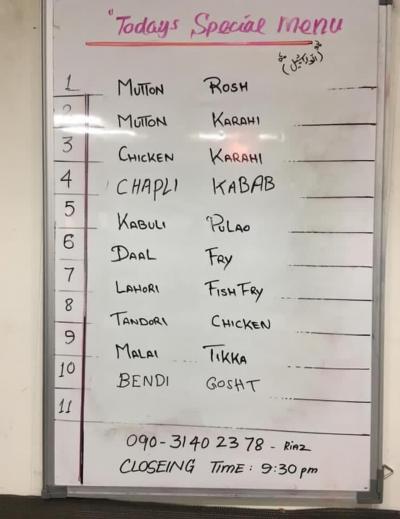 "Todays Special Menu
1 MUTTON ROSH
2 MUTTON KARAHI
3 CHICKEN KARAHI
4 CHAPLI KABAB
5 KABULI PULAO
6 DAAL FRY
7 LAHORI FISH FRY
8 TANDORI CHICKEN
9 MALAI TIKKA
10 BENDI GOSHT
11
090-3140 2378 - RIAZ
CLOSEING TIME: 9:30 pm